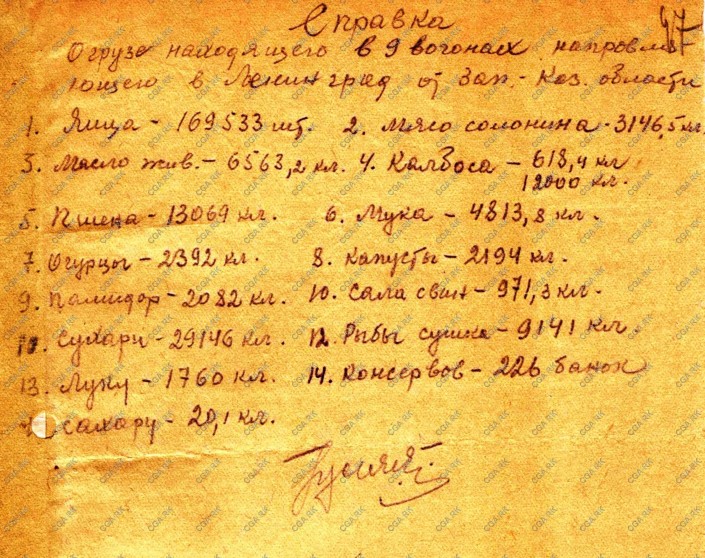 47
Справка
О грузе находящего в 9 вогонах направля
ющего в Ленинград от Зап.-Каз. области
1. Яица - 169533 шт. 2. Мясо солонина - 3146,5 кл.
3. Масло жив. - 6563,2 кл. 4. Калбоса - 618,4 кл
12000 кл.
5. Пшена - 13069 кл. 6. Мука - 4813,8 кл.
7. Огурцы - 2392 кл. 8. Капусты - 2194 кл.
9. Памидор - 2082 кл. 10. Сала свин - 971,3 кл.
11. Сухари - 29146 кл. 12. Рыбы сушка - 9141 кл.
13. Луку - 1760 кл. 14. Консервов - 226 банок
сахару - 20,1 кл.